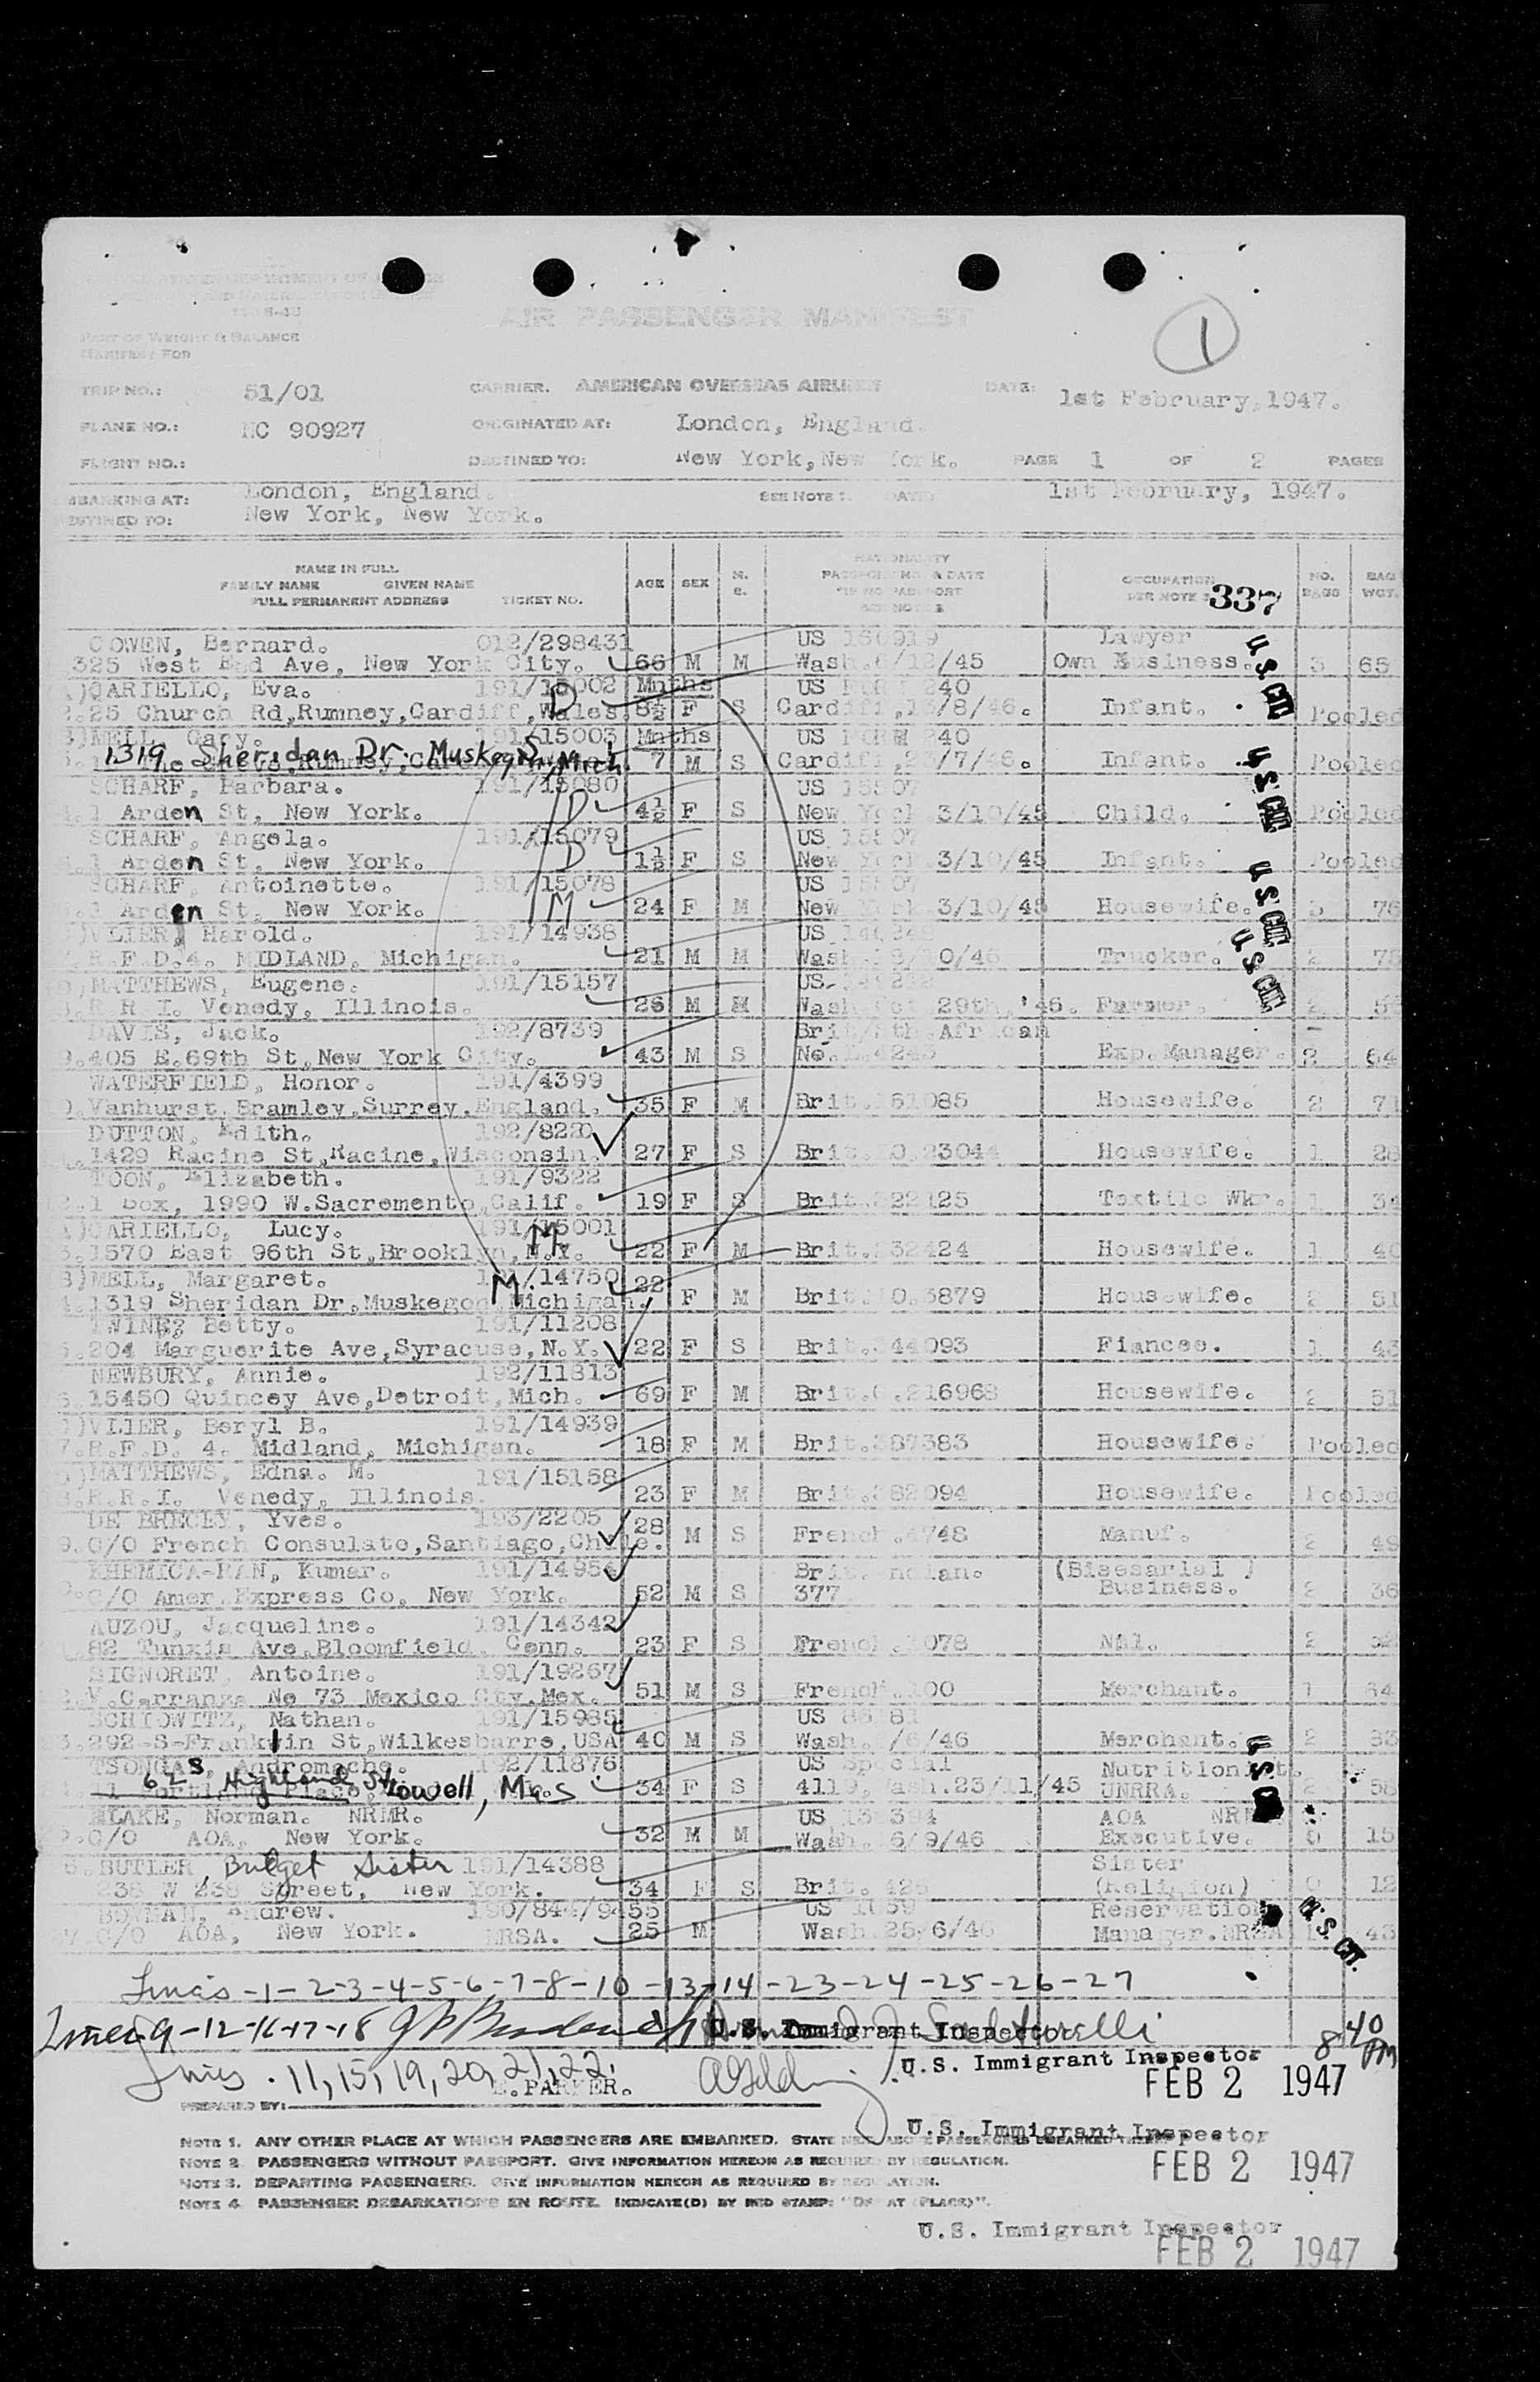 AIR PASSENGER MANIFEST
1
PART OF WEIGHT & BALANCE
MANIFEST FOR
TRIP NO.: 51/01 CARRIER. AMERICAN OVERSEAS AIRLINES DATE: 1st February, 1947.
PLANE NO.: NC 90927 ORIGINATED AT: London, England.
FLIGHT NO.: DESTINED TO: New York, New York. PAGE 1 OF 2 PAGES
EMBARKING AT: London, England. SEE NOTE 1. DATE: 1st February, 1947.
DESTINED TO: New York, New York.
NAME IN FULL
FAMILY NAME GIVEN NAME AGE SEX M. S. NATIONALITY PASSPORT NO. & DATE OCCUPATION NO. BAGS BAG WGT.
FULL PERMANENT ADDRESS TICKET NO. 337
COWEN, Bernard. 012/298431 US 160919 Lawyer
325 West End Ave, New York City. 66 M M Wash.6/12/45 Own Business. 3 65
CARIELLO, Eva. 191/15002 Mnths US FORM 240
25 Church Rd, Rumney, Cardiff, Wales. 8½ F S Cardiff, /8/46. Infant. Pooled
MELL, Gary. 191/15003 Mnths US FORM 240
1319 Sheridan Dr. Muskegon, Mich. 7 M S Cardiff, /7/46. Infant. Pooled
SCHARF, Barbara. 191/15080 US 15507
1 Arden St, New York. D 4½ F S New York 3/10/45 Child. Pooled
SCHARF, Angela. 191/15079 US 15507
1 Arden St, New York. D 1½ F S New York 3/10/45 Infant. Pooled
SCHARF, Antoinette. 191/15078 US 15507
1 Arden St, New York. M 24 F M New York 3/10/45 Housewife. 3 76
VLIER, Harold. 191/14938 US
R.F.D.4. MIDLAND, Michigan. 21 M M Wash. Trucker. 2
MATTHEWS, Eugene. 191/15157 US
R R I. Venedy, Illinois. 26 M M Wash. 29th, '46. Farmer. 2
DAVIS, Jack. 192/8739 Brit/Sth.African
9.405 E.69th St, New York City. 43 M S No. Exp.Manager. 2 64
WATERFIELD, Honor. 191/4399
Vanhurst, Bramley, Surrey, England. 35 F M Brit. 161085 Housewife. 2 71
DUTTON, Edith. 192/8220
1429 Racine St, Racine, Wisconsin. 27 F S Brit. 23044 Housewife. 1 28
TOON, Elizabeth. 191/9322
1 Box, 1990 W.Sacremento, Calif. 19 F S Brit. 322125 Textile Wkr. 1 34
CARIELLO, Lucy. 191/15001
1570 East 96th St, Brooklyn, N.Y. M 22 F M Brit. 332424 Housewife. 1 40
MELL, Margaret. 191/14750
1319 Sheridan Dr, Muskegon, Michigan. M 22 F M Brit. 3879 Housewife. 2 51
Betty. 191/11208
204 Marguerite Ave, Syracuse, N.Y. 22 F S Brit. 344093 Fiancee. 1 43
NEWBURY, Annie. 192/11813
15450 Quincey Ave, Detroit, Mich. 69 F M Brit.C.216968 Housewife. 2 51
VLIER, Beryl B. 191/14939
7.R.F.D. 4. Midland, Michigan. 18 F M Brit.387383 Housewife. Pooled
MATTHEWS, Edna. M. 191/15158
R.R.I. Venedy, Illinois. 23 F M Brit.382094 Housewife. Pooled
DE BRECEY, Yves. 193/2205
9.C/O French Consulate, Santiago, Chile. 28 M S French. 4748 Manuf. 2 49
KHEMICA-RAN, Kumar. 191/14954 Brit. Indian. (Bisesarlal)
C/O Amer.Express Co, New York. 52 M S 377 Business. 2 36
AUZOU, Jacqueline. 191/14342
82 Tunxis Ave, Bloomfield. Conn. 23 F S French. 1078 Nil. 2 32
SIGNORET, Antoine. 191/19267
V.Carranza No 73 Mexico City, Mex. 51 M S French. 100 Merchant. 1
SCHIOWITZ, Nathan. 191/15985 US
292-S-Franklin St, Wilkesbarre, USA 40 M S Wash. /6/46 Merchant. 2 33
TSONGAS, Andromache. 192/11876 US Special Nutritionist.
Highland St Lowell, Mass 34 F S 4119, Wash.23/11/45 UNRRA. 2 58
BLAKE, Norman. NRMR. US AOA
C/O AOA, New York. 32 M M Wash. 6/9/46 Executive. 0 15
6. BUTLER, Bridget Sister 191/14388 Sister
238 W 238 Street, New York. 34 F S Brit. (Religion) 0 12
BOWMAN, Andrew. 190/844/9455 US 1059 Reservation
C/O AOA, New York. NRSA. 25 M Wash 25/6/46 Manager.NRSA 43
Lines -1-2-3-4-5-6-7-8-10-13-14-23-24-25-26-27
Lines 9-12-16-17-18
U.S. Immigrant Inspector 8 40 PM
U.S. Immigrant Inspector
Lines. 11, 15, 19, 20, 21, 22. FEB 2 1947
E. PARKER.
PREPARED BY:
U.S. Immigrant Inspector
NOTE 1. ANY OTHER PLACE AT WHICH PASSENGERS ARE EMBARKED. STATE NEXT ABOVE PASSENGERS EMBARKED THERE
FEB 2 1947
NOTE 2. PASSENGERS WITHOUT PASSPORT. GIVE INFORMATION HEREON AS REQUIRED BY REGULATION.
NOTE 3. DEPARTING PASSENGERS. GIVE INFORMATION HEREON AS REQUIRED BY REGULATION.
NOTE 4. PASSENGER DEBARKATIONS EN ROUTE. INDICATE(D) BY RED STAMP: "D AT (PLACE)".
U.S. Immigrant Inspector
FEB 2 1947